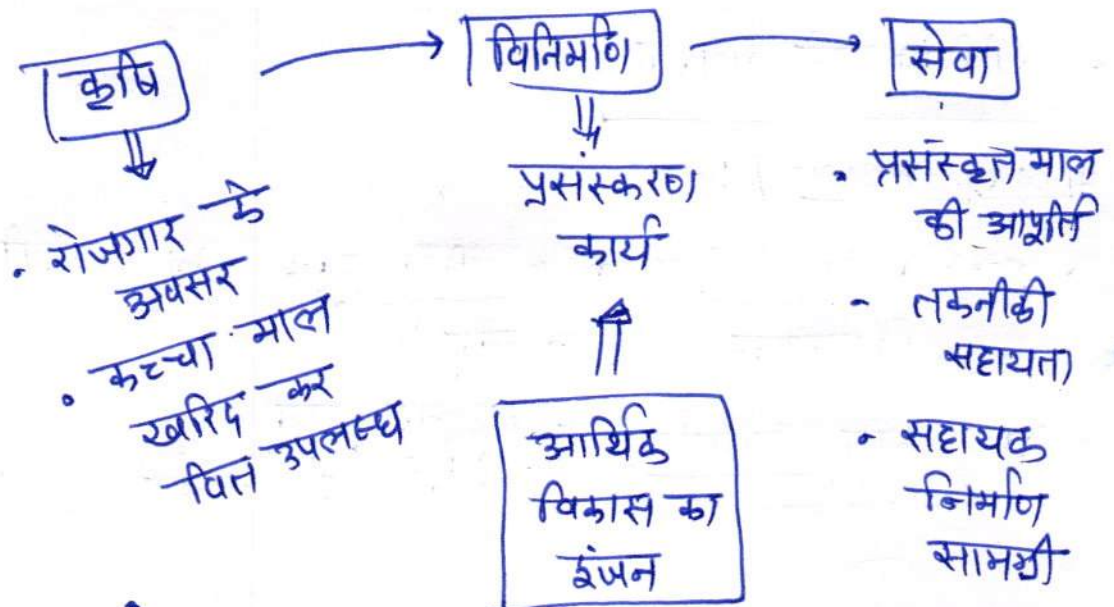 कृषि
विनिर्माण
सेवा
• रोजगार के
अवसर
• कच्चा माल
खरिद कर
वित्त उपलब्ध
प्रसंस्करण
कार्य
आर्थिक
विकास का
इंजन
• प्रसंस्कृत माल
की आपूर्ति
- तकनीकी
सहायता
• सहायक
निर्माण
सामग्री